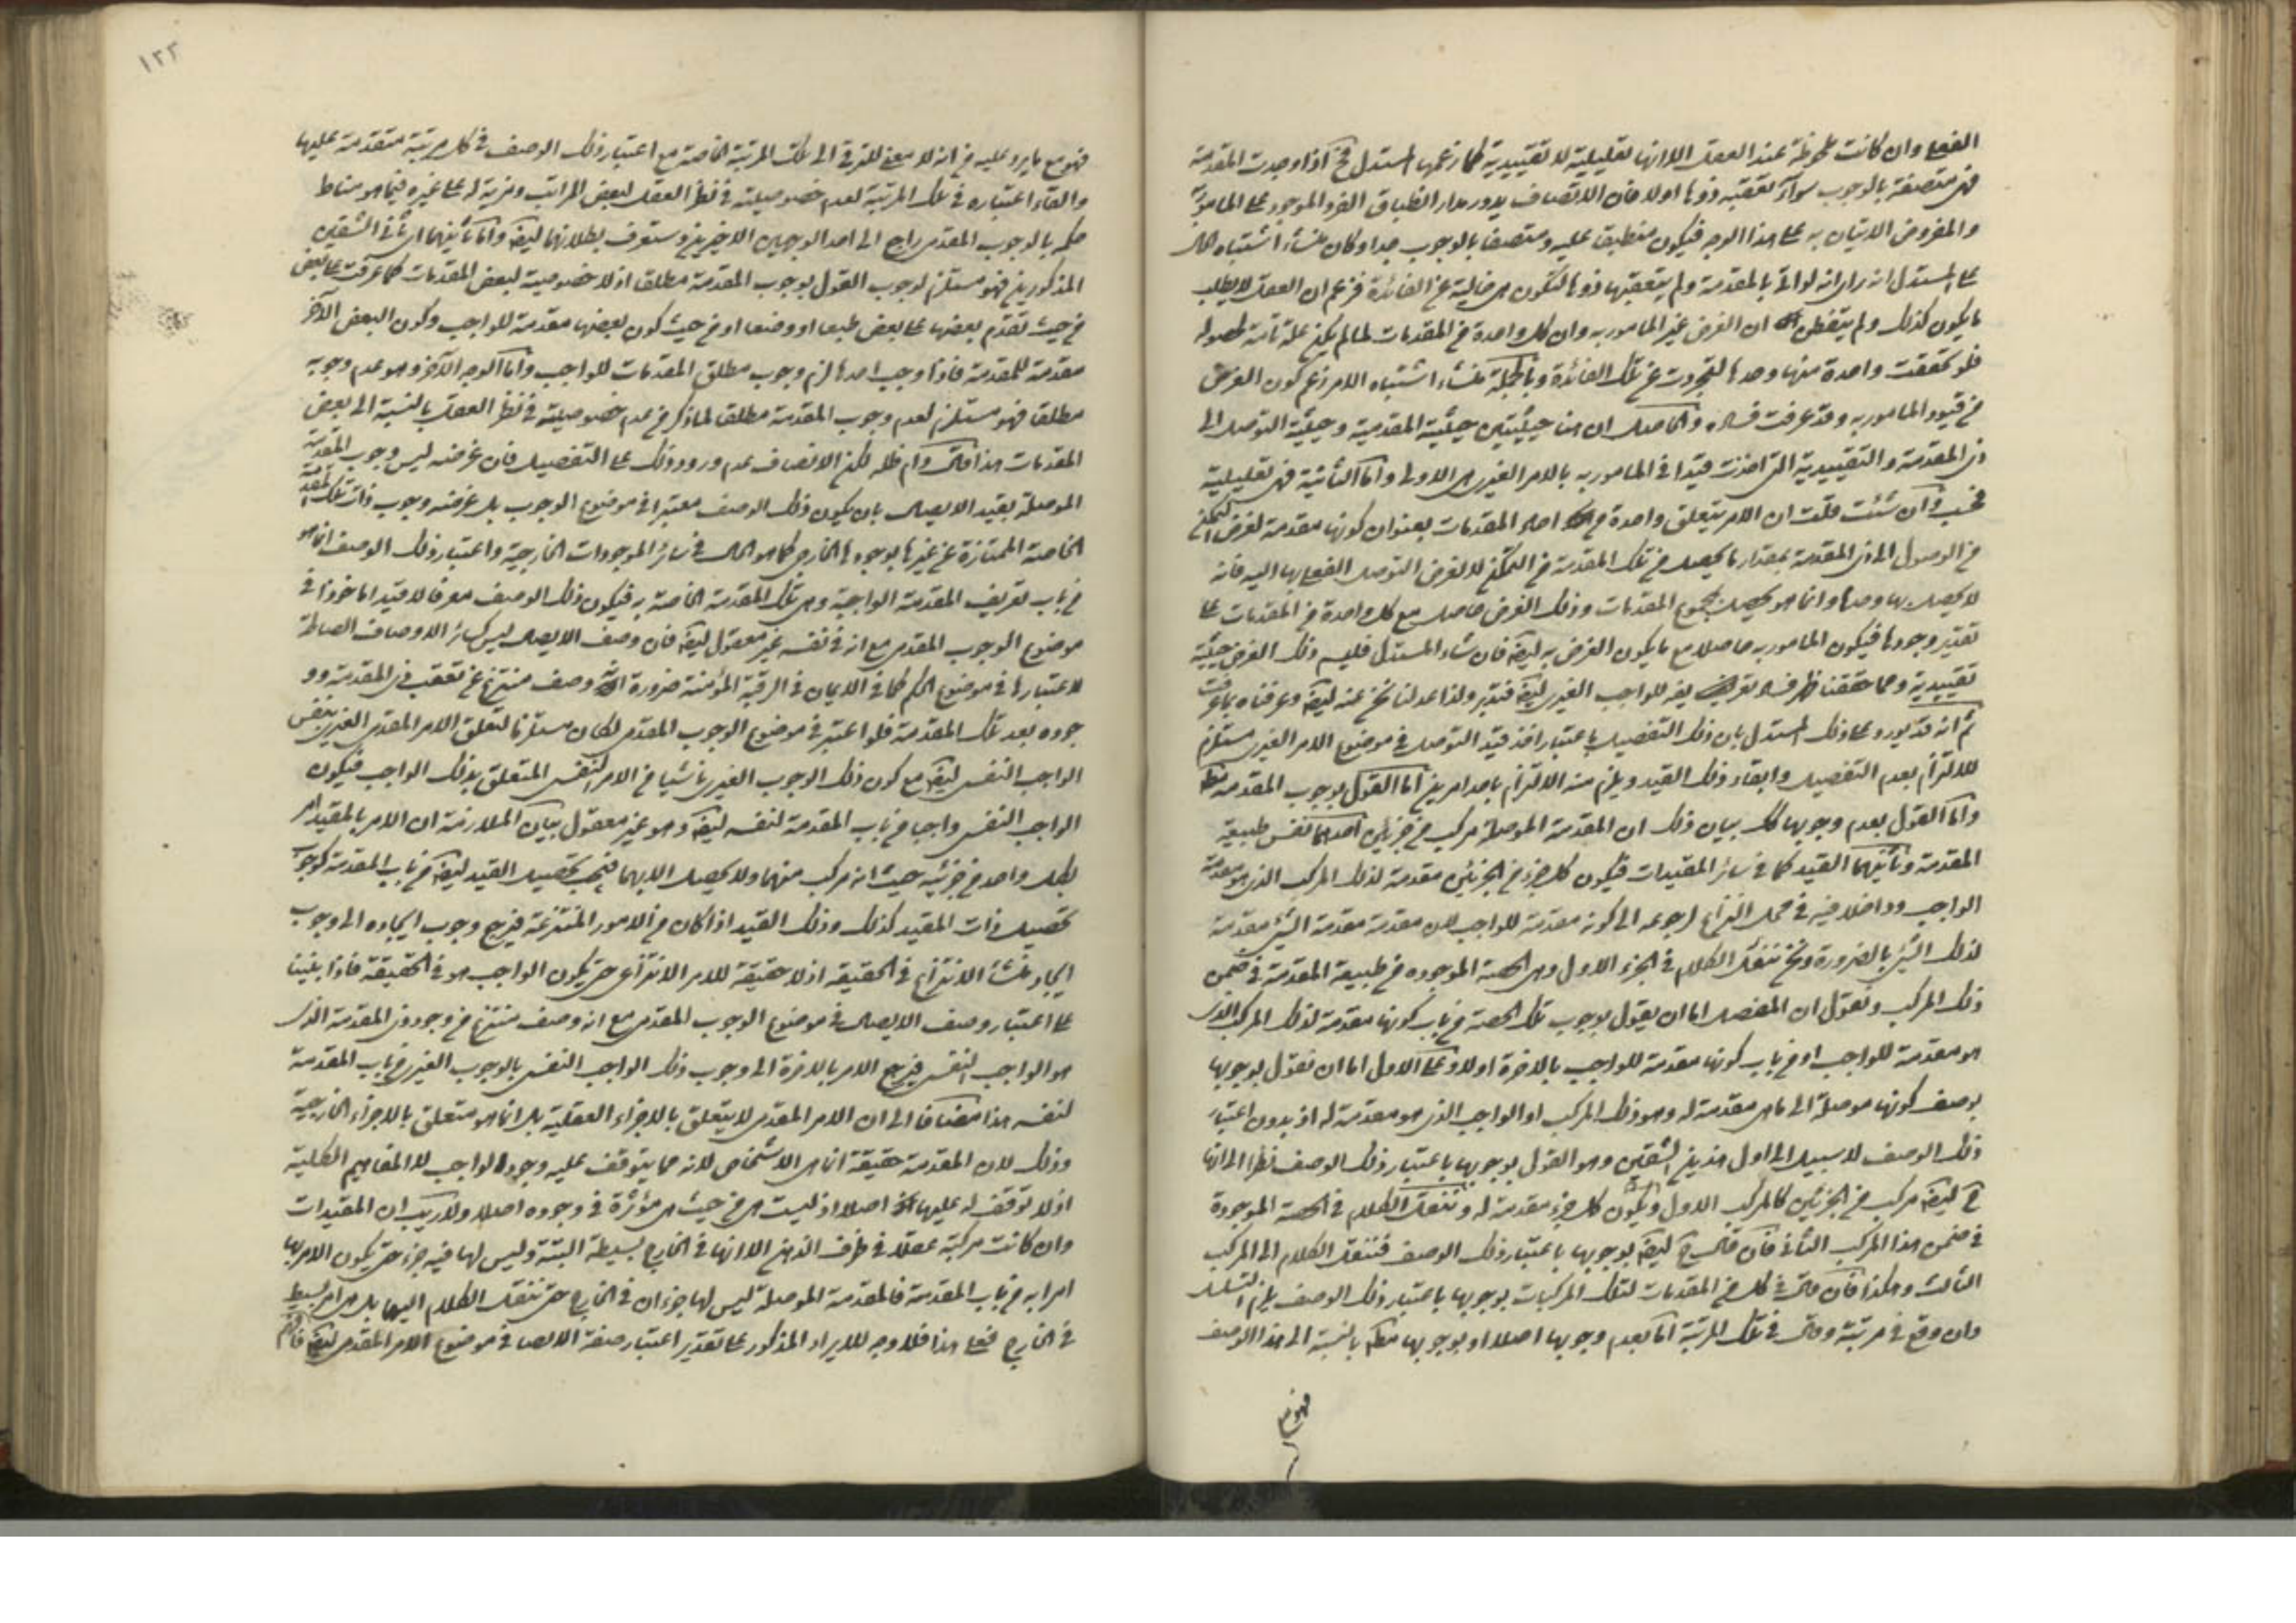 الفعلي وان كانت ملحوظة عند العقل الا انها تعليلية لا تقييدية كما زعمها المستدل فح اذا وجدت المقدمة
فهي متصفة بالوجوب سواء تعقبه ذوها اولا فان الاتصاف يدور مدار انطباق الفرد الموجود على المامور به
والمفروض الاتيان به على هذا الوجه فيكون منطبقا عليه ومتصفا بالوجوب جدا وكان منشأ اشتباه الحال
على المستدل انه راى انه لو اتى بالمقدمة ولم يتعقبها ذوها لتكون هي خالية عن الفائدة فزعم ان العقل لا يطلب
ما يكون كذلك ولم يتفطن ان الغرض غير المامور به وان كل واحدة من المقدمات لما لم يكن علة تامة لحصوله
فلو تحققت واحدة منها وحدها لتجردت عن تلك الفائدة وبالجملة منشأ اشتباه الامر زعم كون الغرض
من قيود المامور به وقد عرفت فساده والحاصل ان هنا حيثيتين حيثية المقدمية وحيثية التوصل الى
ذي المقدمة والتقييدية التي اخذت قيدا في المامور به بالامر الغيري هي الاولى واما الثانية فهي تعليلية
فحسب وان شئت قلت ان الامر يتعلق واحدة من احاد المقدمات بعنوان كونها مقدمة لغرض التمكن
من الوصول الى ذي المقدمة بمقدار ما يحصل من تلك المقدمة من التمكن لا لغرض التوصل الفعلي بها اليه فانه
لا يحصل بها وحدها وانما هو يحصل بمجموع المقدمات وذلك الغرض حاصل مع كل واحدة من المقدمات على
تقدير وجودها فيكون المامور به حاصلا مع ما يكون الغرض به ايضا فان شاء المستدل فليسم ذلك الغرض حيثية
تقييدية ومما حققنا ظهر فساد تعريف بعض للواجب الغيري ايضا فتدبر ولذا عدلنا نحن عنه ايضا وعرفناه بما عرفت
ثم انه قد يورد على ذلك المستدل بان ذلك التفصيل باعتبار اخذ قيد التوصل في موضوع الامر الغيري مستلزم
للالتزام بعدم التفصيل وابقاء ذلك القيد ويلزم منه الالتزام باحد امرين اما القول بوجوب المقدمة مطلقا
واما القول بعدم وجوبها كك بيان ذلك ان المقدمة الموصلة مركب من جزئين احدهما نفس طبيعة
المقدمة وثانيهما القيد كما في سائر المقيدات فيكون كل جزء من الجزئين مقدمة لذلك المركب الذي هو مقدمة
الواجب وداخلا فيه في محل النزاع لرجوعه الى كونه مقدمة للواجب لان مقدمة مقدمة الشيء مقدمة
لذلك الشيء بالضرورة ونحن ننقل الكلام في الجزء الاول وهي الحصة الموجودة من طبيعة المقدمة في ضمن
ذلك المركب ونقول ان المفصل اما ان يقول بوجوب تلك الحصة من باب كونها مقدمة لذلك المركب الذي
هو مقدمة للواجب او من باب كونها مقدمة للواجب بالاخرة اولا وعلى الاول اما ان نقول بوجوبها
بوصف كونها موصلة الى ما هي مقدمة له وهو ذلك المركب او الواجب الذي هو مقدمة له او بدون اعتبار
ذلك الوصف لا سبيل الى اول هذين الشقين وهو القول بوجوبها باعتبار ذلك الوصف نظرا الى انها
ح ايضا مركب من الجزئين كالمركب الاول ويكون كل جزء مقدمة له وننقل الكلام في الحصة الموجودة
في ضمن هذا المركب الثاني فان قال ح ايضا بوجوبها باعتبار ذلك الوصف فننقل الكلام الى المركب
الثالث وهكذا فان قال في كل من المقدمات لتلك المركبات بوجوبها باعتبار ذلك الوصف يلزم التسلسل
وان وقع في مرتبة وقال في تلك المرتبة اما بعدم وجوبها اصلا او بوجوبها مطلقا بالنسبة الى هذا الوصف
فهو مع
١٢٣
فهو مع ما يرد عليه من انه لا معنى للترقي الى تلك المرتبة الخاصة مع اعتبار ذلك الوصف في كل مرتبة متقدمة عليها
والقاء اعتباره في تلك المرتبة لعدم خصوصيته في نظر العقل لبعض المراتب ومزية له على غيره فيما هو مناط
حكمه بالوجوب المقدمي راجع الى احد الوجهين الاخيرين وستعرف بطلانهما ايضا واما ثانيهما اي ثاني الشقين
المذكورين فهو مستلزم لوجوب القول بوجوب المقدمة مطلقا اذ لا خصوصية لبعض المقدمات كما عرفت على بعض
من حيث تقدم بعضها على بعض طبعا او وضعا او من حيث كون بعضها مقدمة للواجب وكون البعض الآخر
مقدمة للمقدمة فاذا وجب احدها لزم وجوب مطلق المقدمات للواجب واما الوجه الآخر وهو عدم وجوبه
مطلقا فهو مستلزم لعدم وجوب المقدمة مطلقا لما ذكر من عدم خصوصيته في نظر العقل بالنسبة الى بعض
المقدمات هذا قال دام ظله لكن الانصاف عدم ورود ذلك على التفصيل فان غرضه ليس وجوب المقدمة
الموصلة بقيد الايصال بان يكون ذلك الوصف معتبرا في موضوع الوجوب بل غرضه وجوب ذات تلك المقدمة
الخاصة الممتازة عن غيرها بوجودها الخارجي كما هو الحال في سائر الموجودات الخارجية واعتبار ذلك الوصف انما هو
من باب تعريف المقدمة الواجبة وهي تلك المقدمة الخاصة به فيكون ذلك الوصف معرفا لا قيدا ماخوذا في
موضوع الوجوب المقدمي مع انه في نفسه غير معقول ايضا فان وصف الايصال ليس كسائر الاوصاف الصالحة
لاعتبارها في موضوع الحكم كما في الايمان في الرقبة المؤمنة ضرورة انه وصف منتزع عن تعقب ذي المقدمة وو
جوده بعد تلك المقدمة فلو اعتبر في موضوع الوجوب المقدمي لكان مستلزما لتعلق الامر المقدمي الغيري بنفس
الواجب النفسي ايضا مع كون ذلك الوجوب الغيري ناشيا من الامر النفسي المتعلق بذلك الواجب فيكون
الواجب النفسي واجبا من باب المقدمة لنفسه ايضا وهو غير معقول بيان الملازمة ان الامر بالمقيد امر
بكل واحد من جزئيه حيث انه مركب منهما ولا يحصل الا بهما فيجب تحصيل القيد ايضا من باب المقدمة كوجوب
تحصيل ذات المقيد كذلك وذلك القيد اذا كان من الامور المنتزعة فيرجع وجوب ايجاده الى وجوب
ايجاد منشأ الانتزاع في الحقيقة اذ لا حقيقة للامر الانتزاعي حتى يكون الواجب هو في الحقيقة فاذا بنينا
على اعتبار وصف الايصال في موضوع الوجوب المقدمي مع انه وصف منتزع من وجود ذي المقدمة الذي
هو الواجب النفسي فيرجع الامر بالاخرة الى وجوب ذلك الواجب النفسي بالوجوب الغيري من باب المقدمة
لنفسه هذا مضافا الى ان الامر المقدمي لا يتعلق بالاجزاء العقلية بل انما هو متعلق بالاجزاء الخارجية
وذلك لان المقدمة حقيقة انما هي الاشخاص لانه مما يتوقف عليه وجود الواجب لا المفاهيم الكلية
اذ لا توقف له عليها اصلا اذ ليست هي من حيث هي مؤثرة في وجوده اصلا ولا ريب ان المقيدات
وان كانت مركبة عقلا في ظرف الذهن الا انها في الخارج بسيطة البتة وليس لها فيه جزء حتى يكون الامر بها
امرا به من باب المقدمة فالمقدمة الموصلة ليس لها جزءان في الخارج حتى ننقل الكلام اليهما بل هي امر بسيط
في الخارج فعلى هذا فلا وجه للايراد المذكور على تقدير اعتبار صفة الايصال في موضوع الامر المقدمي ايضا فافهم